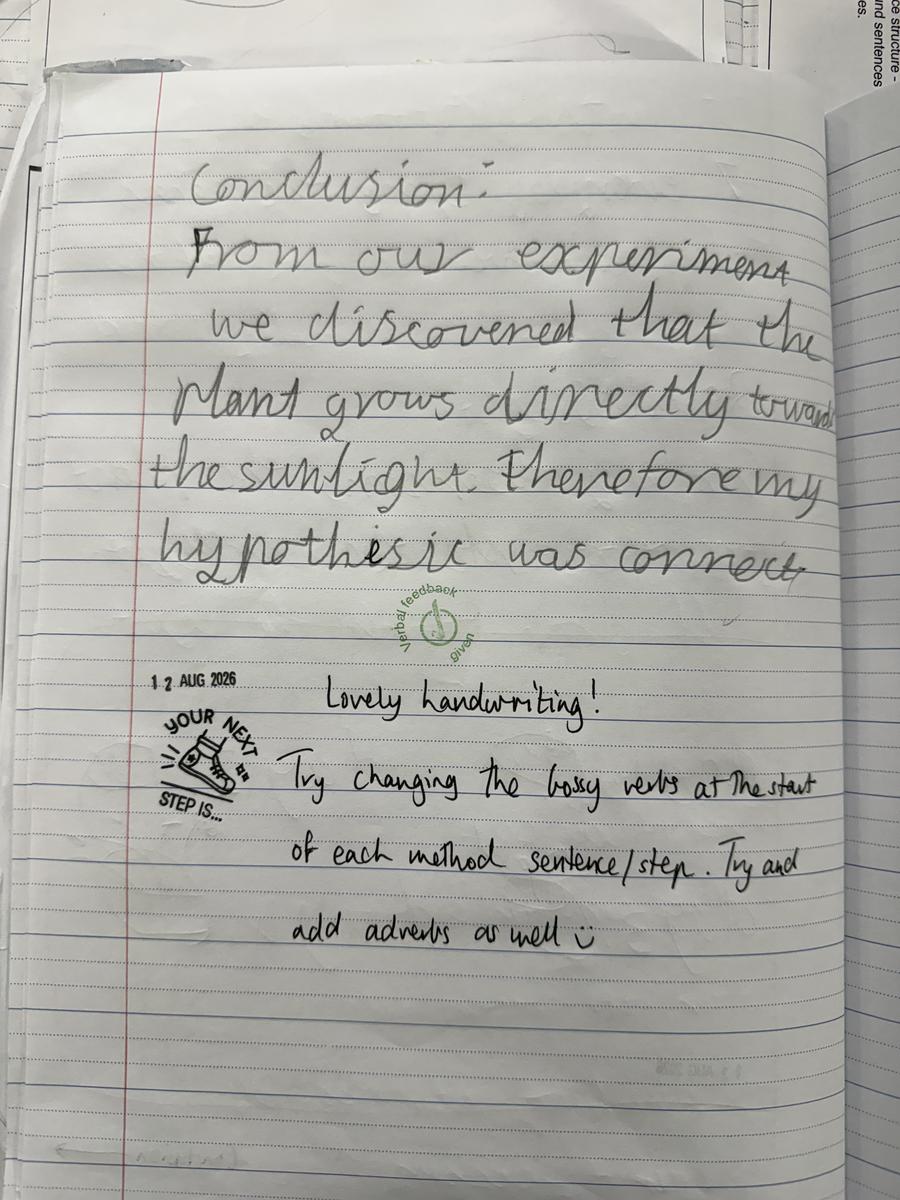 ce structure -
und sentences
es.
Conclusion:
From our experiment
we discovered that the
plant grows directly towards
the sunlight. Therefore my
hypothesis was correct
Verbal feedback
given
12 AUG 2026
Lovely handwriting!
YOUR NEXT
STEP IS...
Try changing the bossy verbs at the start
of each method sentence/step. Try and
add adverbs as well :)